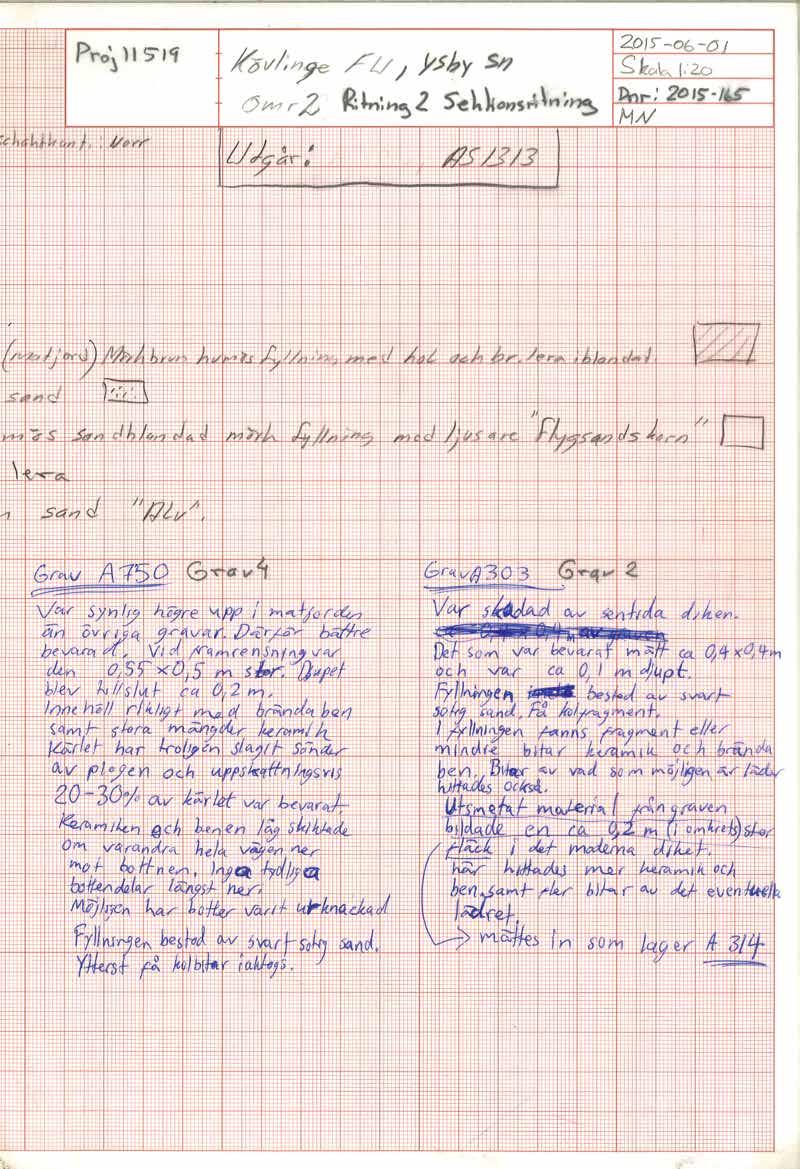 Proj 11519
Kövlinge FU, Ysby sn
omr 2 Ritning 2 Sektionsritning
2015-06-01
Skala 1:20
Dnr: 2015-165
MN
schaktkant.: Norr
Utgår: AS1313
(matjord) Mörkbrun humös fyllning med kol och br. lera iblandat.
sand
mös sandblandad mörk fyllning med ljusare "Flygsandskorn"
lera
n sand "Alv".
Grav A750 Grav 4
Var synlig högre upp i matjorden
än övriga gravar. Därför bättre
bevarad. Vid framrensning var
den 0,55 x 0,5 m stor. Djupet
blev tillslut ca 0,2 m.
Innehöll rikligt med brända ben
samt stora mängder keramik
Kärlet har troligen slagit sönder
av plogen och uppskattningsvis
20-30% av kärlet var bevarat
Keramiken och benen låg skiktade
om varandra hela vägen ner
mot bottnen. Inga tydliga
bottendelar längst ner.
Möjligen har botten varit urknackad
Fyllningen bestod av svart sotig sand.
Ytterst få kolbitar iakttogs.
Grav A303 Grav 2
Var skadad av sentida diken.
Det som var bevarat mätt ca 0,4 x 0,4 m
och var ca 0,1 m djupt.
Fyllningen bestod av svart
sotig sand. Få kolfragment.
I fyllningen fanns fragment eller
mindre bitar keramik och brända
ben. Bitar av vad som möjligen är läder
hittades också.
Utsmetat material från graven
bildade en ca 0,2 m (i omkrets) stor
fläck i det moderna diket.
här hittades mer keramik och
ben, samt fler bitar av det eventuella
lädret.
mättes in som lager A 314